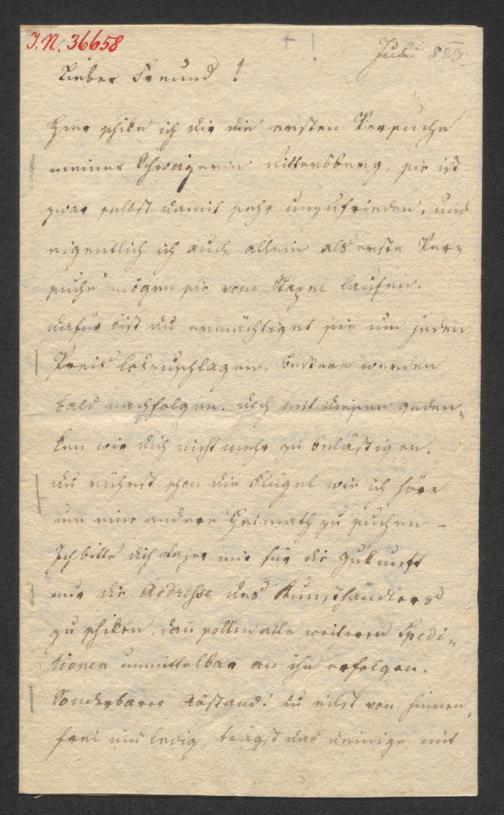 I.N. 36658
Juli 823.
Lieber Freund!
Hier schike ich dir die ersten Versuche
meiner Schwägerin Rittersberg, sie ist
zwar selbst damit sehr unzufrieden, und
eigentlich ich auch, allein als erste Ver-
suche mögen sie vom Stapel laufen.
dafür bist du ermächtiget sie um jeden
Preis loszuschlagen, bessere werden
bald nachfolgen. doch mit diesen geden-
ken wir dich nicht mehr zu belästigen.
du rührst schon die Flügel wie ich höre
um eine andere Heimath zu suchen –
Ich bitte dich daher mir für die Zukunft
nur die Addresse des Kunsthändlers
zu schiken, dañ sollen alle weiteren Spedi-
tionen unmittelbar an ihn erfolgen.
Sonderbarer Abstand! du eilst von hinnen,
frei und ledig, trägst das deinige mit